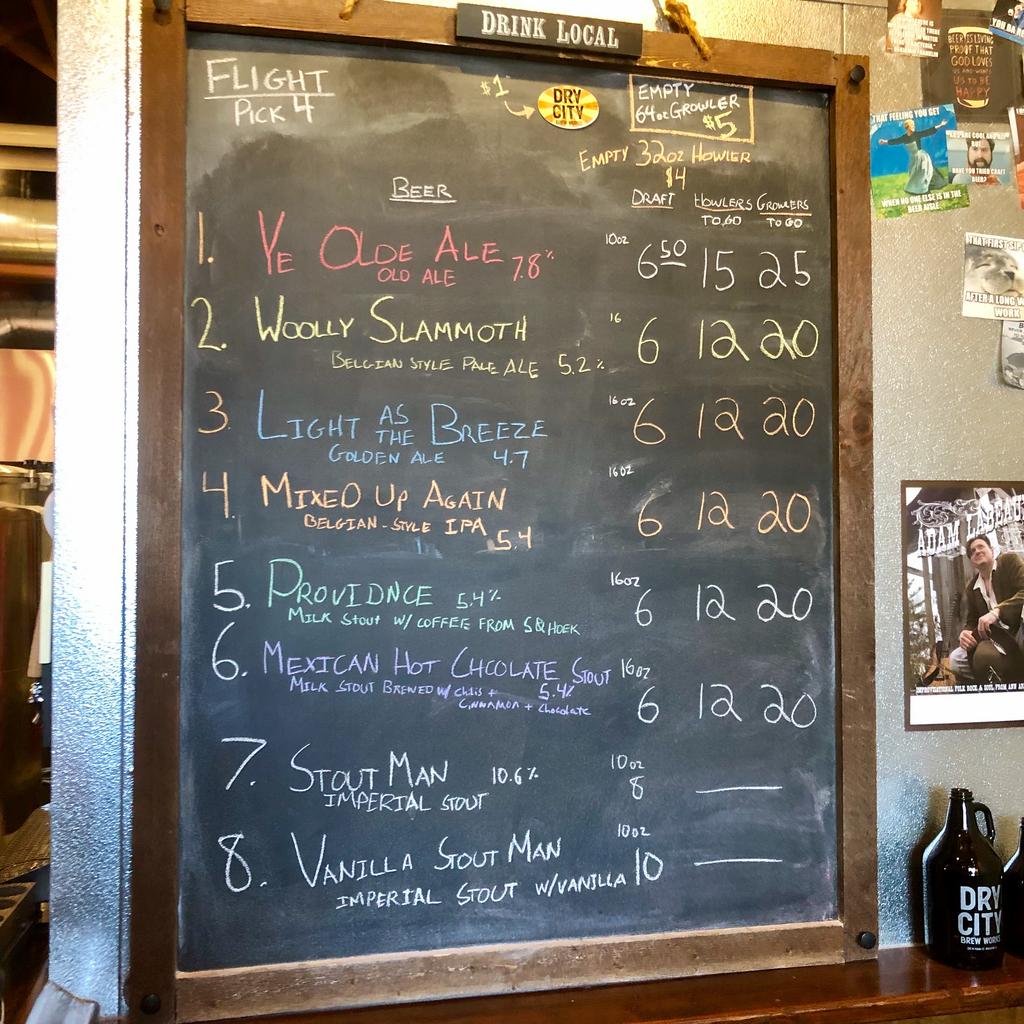 DRINK LOCAL
FLIGHT
PICK 4
$1
DRY
CITY
EMPTY
64oz GROWLER
$5
EMPTY 32oz HOWLER
$4
BEER
DRAFT HOWLERS GROWLERS
TO GO TO GO
1. YE OLDE ALE 7.8% 10oz 6 50 15 25
OLD ALE
2. WOOLLY SLAMMOTH 16 6 12 20
BELGIAN STYLE PALE ALE 5.2%
3. LIGHT AS THE BREEZE 16oz 6 12 20
GOLDEN ALE 4.7
4. MIXED UP AGAIN 16oz 6 12 20
BELGIAN-STYLE IPA 5.4
5. PROVIDNCE 5.4% 16oz 6 12 20
MILK STOUT W/ COFFEE FROM
6. MEXICAN HOT CHCOLATE STOUT 16oz 6 12 20
MILK STOUT BREWED W/ 5.4%
CINNAMON + Chocolate
7. STOUT MAN 10.6% 10oz 8
IMPERIAL STOUT
8. VANILLA STOUT MAN 10oz 10
IMPERIAL STOUT W/VANILLA
BEER IS LIVING
PROOF THAT
GOD LOVES
US AND WANTS
US TO BE
HAPPY
THAT FEELING YOU GET
WHEN NO ONE ELSE IS IN THE
BEER AISLE
HAVE YOU TRIED CRAFT
BEER?
THAT FIRST SIP
AFTER A LONG
WORK
ADAM LABEAU
DRY
CITY
BREW WORKS